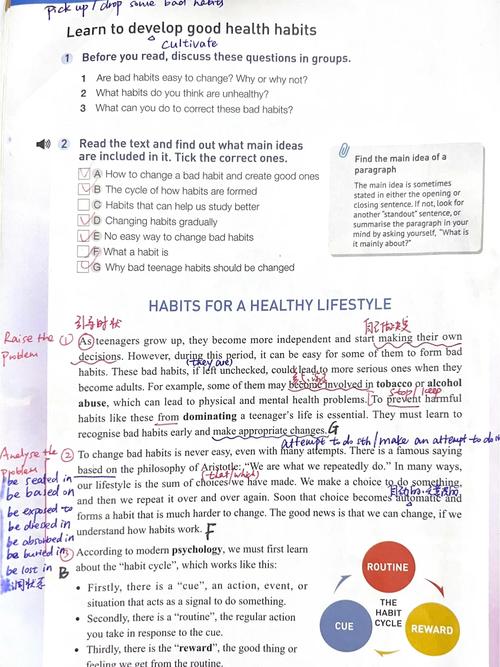 pick up / drop some bad habits
Learn to develop good health habits
cultivate
1 Before you read, discuss these questions in groups.
1 Are bad habits easy to change? Why or why not?
2 What habits do you think are unhealthy?
3 What can you do to correct these bad habits?
2 Read the text and find out what main ideas
are included in it. Tick the correct ones.
A How to change a bad habit and create good ones
B The cycle of how habits are formed
C Habits that can help us study better
D Changing habits gradually
E No easy way to change bad habits
F What a habit is
G Why bad teenage habits should be changed
Find the main idea of a
paragraph
The main idea is sometimes
stated in either the opening or
closing sentence. If not, look for
another "standout" sentence, or
summarise the paragraph in your
mind by asking yourself, "What is
it mainly about?"
HABITS FOR A HEALTHY LIFESTYLE
引导时状
Raise the
Problem
1
As teenagers grow up, they become more independent and start making their own
decisions. However, during this period, it can be easy for some of them to form bad
(they are)
habits. These bad habits, if left unchecked, could lead to more serious ones when they
become adults. For example, some of them may become involved in tobacco or alcohol
abuse, which can lead to physical and mental health problems. To prevent harmful
stop / keep
habits like these from dominating a teenager's life is essential. They must learn to
recognise bad habits early and make appropriate changes. G
attempt to do sth / make an attempt to do sth
Analyse the
Problem
2
To change bad habits is never easy, even with many attempts. There is a famous saying
based on the philosophy of Aristotle: "We are what we repeatedly do." In many ways,
(that/which)
our lifestyle is the sum of choices we have made. We make a choice to do something,
and then we repeat it over and over again. Soon that choice becomes automatic and
forms a habit that is much harder to change. The good news is that we can change, if we
understand how habits work. F
be seated in
be based on
be exposed to
be dressed in
be absorbed in
be buried in
be lost in
3
According to modern psychology, we must first learn
about the "habit cycle", which works like this:
B
• Firstly, there is a "cue", an action, event, or
situation that acts as a signal to do something.
• Secondly, there is a "routine", the regular action
you take in response to the cue.
• Thirdly, there is the "reward", the good thing or
feeling we get from the routine.
ROUTINE
THE
HABIT
CYCLE
CUE
REWARD